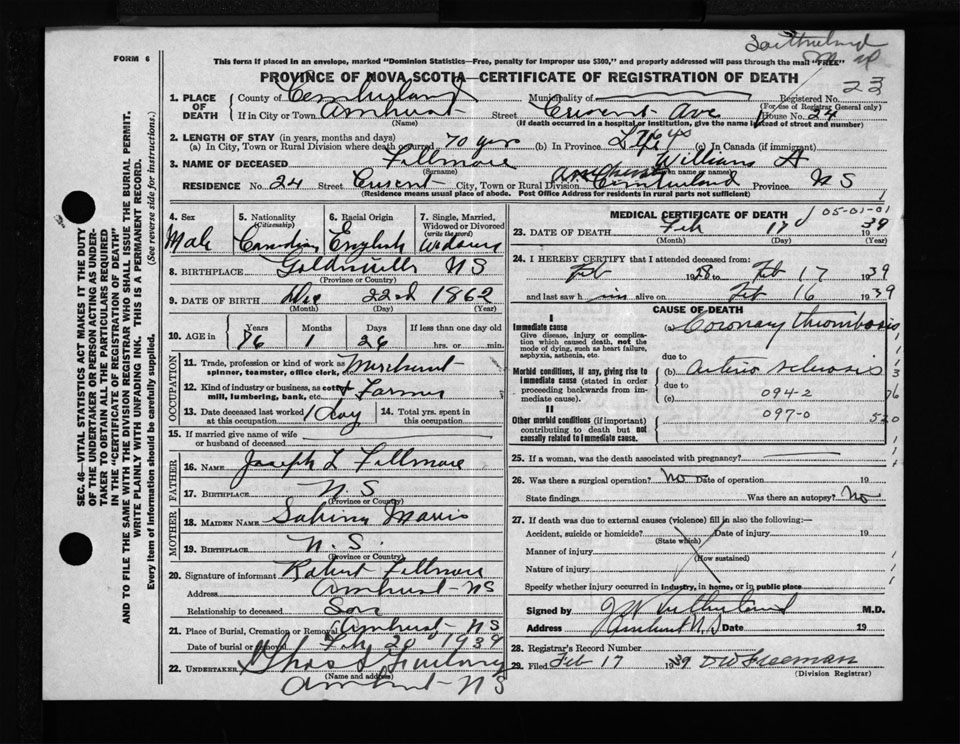 Sutherland
FORM 6
This form if placed in an envelope, marked "Dominion Statistics—Free, penalty for improper use $300," and properly addressed will pass through the mail "FREE"
PROVINCE OF NOVA SCOTIA—CERTIFICATE OF REGISTRATION OF DEATH
23
1. PLACE OF DEATH
County of Cumberland Municipality of Registered No.
(For use of Registrar General only)
If in City or Town Amherst Street Crescent Ave House No. 24
(Name) (If death occurred in a hospital or institution, give the name instead of street and number)
2. LENGTH OF STAY (in years, months and days)
(a) In City, Town or Rural Division where death occurred 70 yrs (b) In Province Life (c) In Canada (if immigrant)
3. NAME OF DECEASED Fillmore William A
(Surname) (Christian name or names)
RESIDENCE No. 24 Street Cresent City, Town or Rural Division Cumberland Province N S
(Residence means usual place of abode. Post Office Address for residents in rural parts not sufficient)
4. Sex Male
5. Nationality (Citizenship) Canadian
6. Racial Origin English
7. Single, Married, Widowed or Divorced (write the word) Widower
8. BIRTHPLACE N S
(Province or Country)
9. DATE OF BIRTH Dec 22nd 1862
(Month) (Day) (Year)
10. AGE in Years Months Days If less than one day old
76 1 26 hrs. or min.
OCCUPATION
11. Trade, profession or kind of work as spinner, teamster, office clerk, etc. Merchant
12. Kind of industry or business, as cotton mill, lumbering, bank, etc. Farmer
13. Date deceased last worked at this occupation 1 Day
14. Total yrs. spent in this occupation
15. If married give name of wife or husband of deceased
FATHER
16. NAME Joseph L Fillmore
17. BIRTHPLACE N S
(Province or Country)
MOTHER
18. MAIDEN NAME
19. BIRTHPLACE N. S.
(Province or Country)
20. Signature of informant Robert Fillmore
Address Amherst - N S
Relationship to deceased Son
21. Place of Burial, Cremation or Removal Amherst - N S
Date of burial or removal Feb 20, 1939
22. UNDERTAKER Chas
(Name and address)
Amherst - N S
MEDICAL CERTIFICATE OF DEATH
05-01-01
23. DATE OF DEATH Feb 17 1939
(Month) (Day) (Year)
24. I HEREBY CERTIFY that I attended deceased from:
Feb 1938 Feb 17 1939
and last saw h im alive on Feb 16 1939
CAUSE OF DEATH
I
Immediate cause
Give disease, injury or complication which caused death, not the mode of dying, such as heart failure, asphyxia, asthenia, etc.
(a) Coronary thrombosis
due to
Morbid conditions, if any, giving rise to immediate cause (stated in order proceeding backwards from immediate cause).
(b) Arterio sclerosis
due to
(c) 094-2
II
097-0
Other morbid conditions (if important) contributing to death but not causally related to immediate cause.
25. If a woman, was the death associated with pregnancy?
26. Was there a surgical operation? No Date of operation 19
State findings Was there an autopsy? No
27. If death was due to external causes (violence) fill in also the following:—
Accident, suicide or homicide? Date of injury 19
(State which)
Manner of injury
(How sustained)
Nature of injury
Specify whether injury occurred in industry, in home, or in public place
Signed by J W Sutherland M.D.
Address Amherst N.S Date 19
28. Registrar's Record Number
29. Filed Feb 17 1939 D W Freeman
(Division Registrar)
SEC. 46—VITAL STATISTICS ACT MAKES IT THE DUTY
OF THE UNDERTAKER OR PERSON ACTING AS UNDERTAKER
TO OBTAIN ALL THE PARTICULARS REQUIRED
IN THE "CERTIFICATE OF REGISTRATION OF DEATH"
AND TO FILE THE SAME WITH THE DIVISION REGISTRAR WHO SHALL ISSUE THE BURIAL PERMIT.
WRITE PLAINLY WITH UNFADING INK. THIS IS A PERMANENT RECORD.
Every item of information should be carefully supplied. (See reverse side for instructions.)